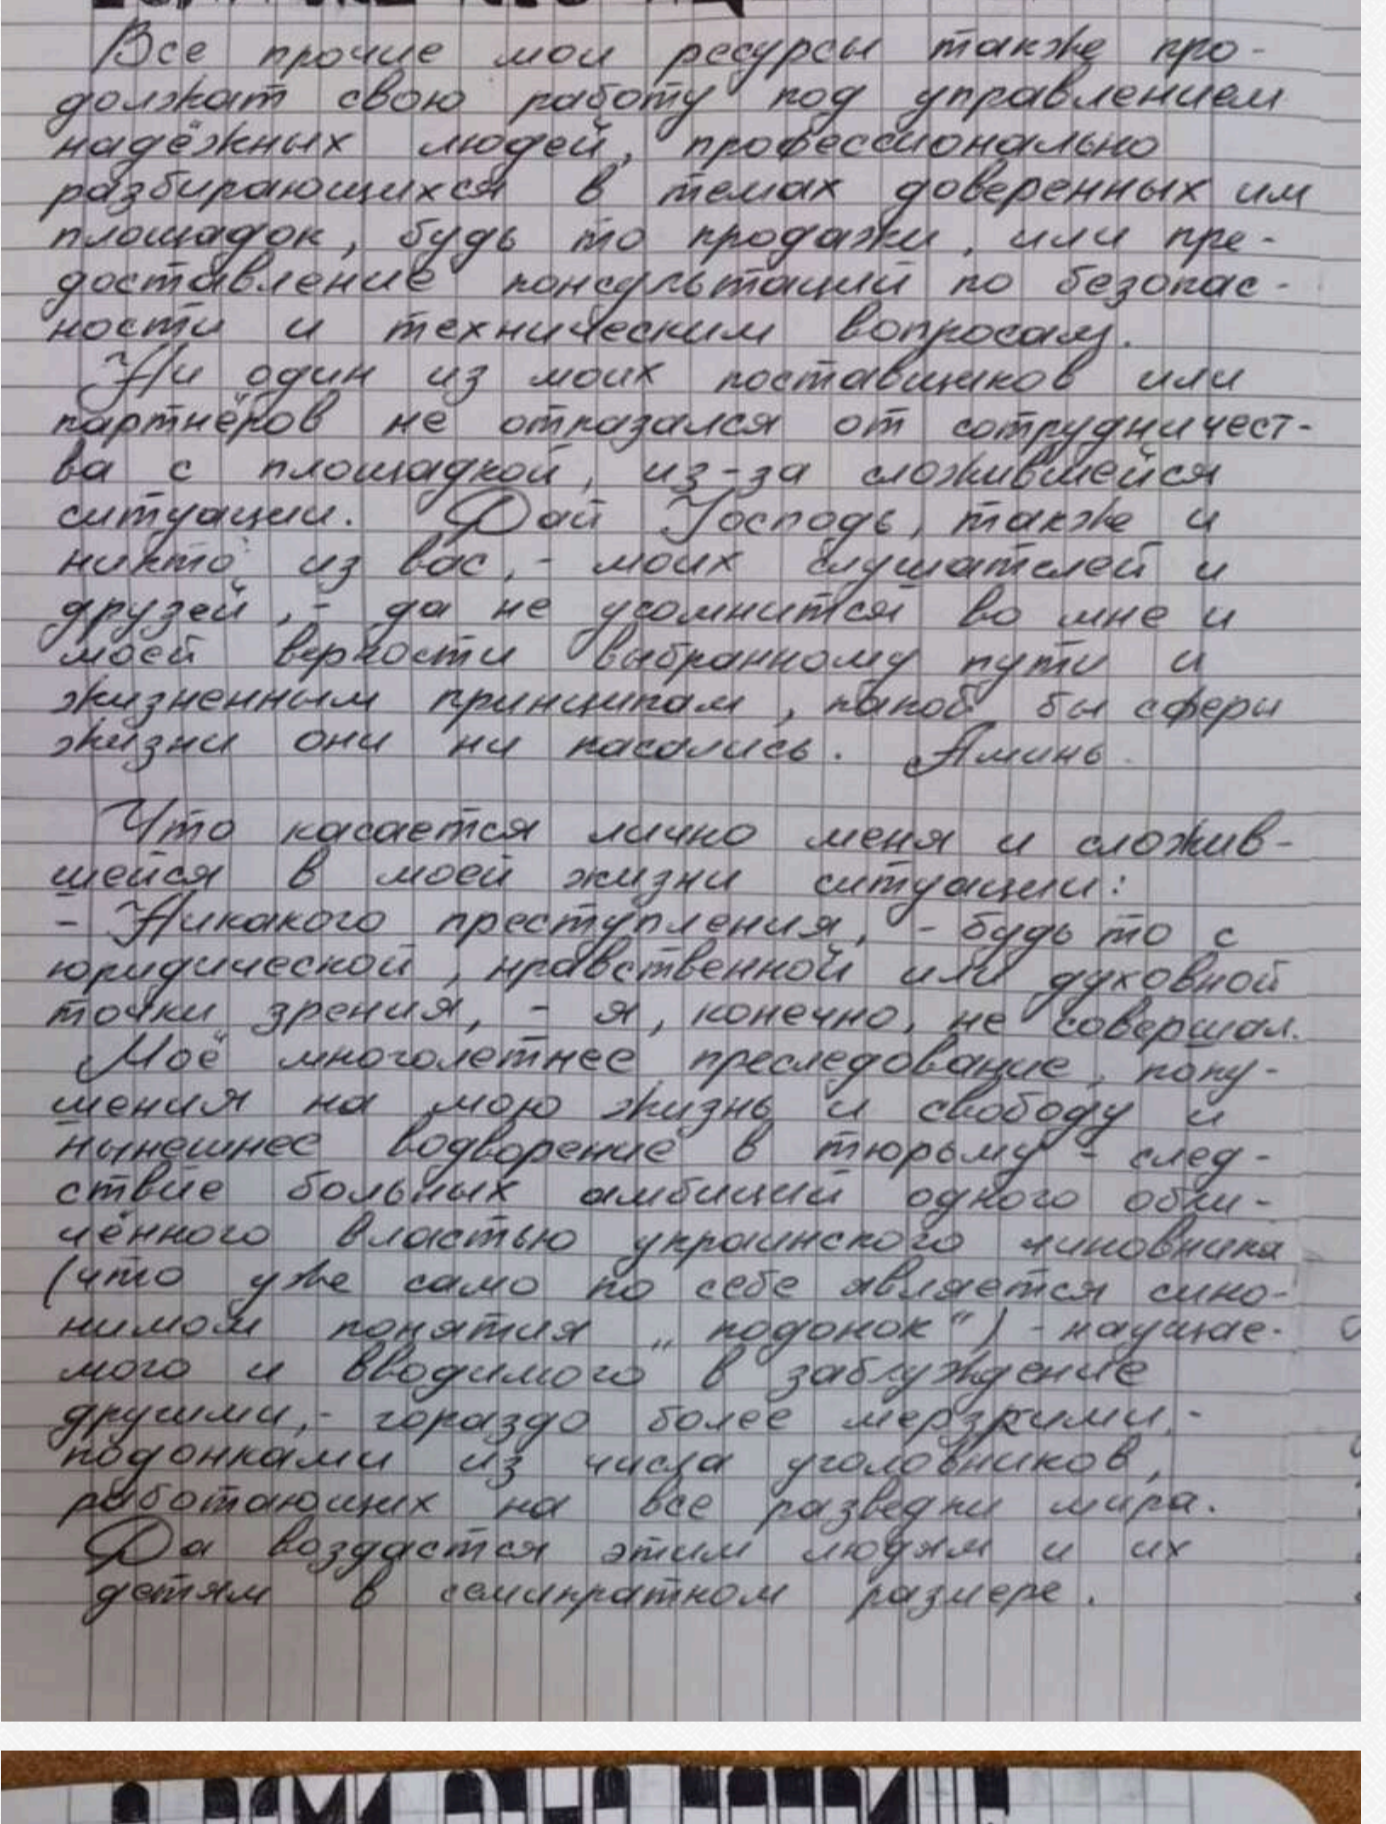 Все прочие мои ресурсы также про-
должат свою работу под управлением
надёжных людей, профессионально
разбирающихся в темах доверенных им
площадок, будь то продажи, или пре-
доставление консультаций по безопас-
ности и техническим вопросам.
Ни один из моих поставщиков или
партнёров не отказался от сотрудничест-
ва с площадкой, из-за сложившейся
ситуации. Дай Господь, также и
никто из вас, - моих слушателей и
друзей, - да не усомнится во мне и
моей верности выбранному пути и
жизненным принципам, какой бы сферы
жизни они ни касались. Аминь.
Что касается лично меня и сложив-
шейся в моей жизни ситуации:
- Никакого преступления, - будь то с
юридической, нравственной или духовной
точки зрения, - я, конечно, не совершал.
Моё многолетнее преследование, поку-
шения на мою жизнь и свободу и
нынешнее водворение в тюрьму - след-
ствие больных амбиций одного обли-
чённого властью украинского чиновника
(что уже само по себе является сино-
нимом понятия „подонок") - научае-
мого и вводимого в заблуждение
другими, - гораздо более мерзкими, -
подонками из числа уголовников,
работающих на все разведки мира.
Да воздастся этим людям и их
детям в семикратном размере.